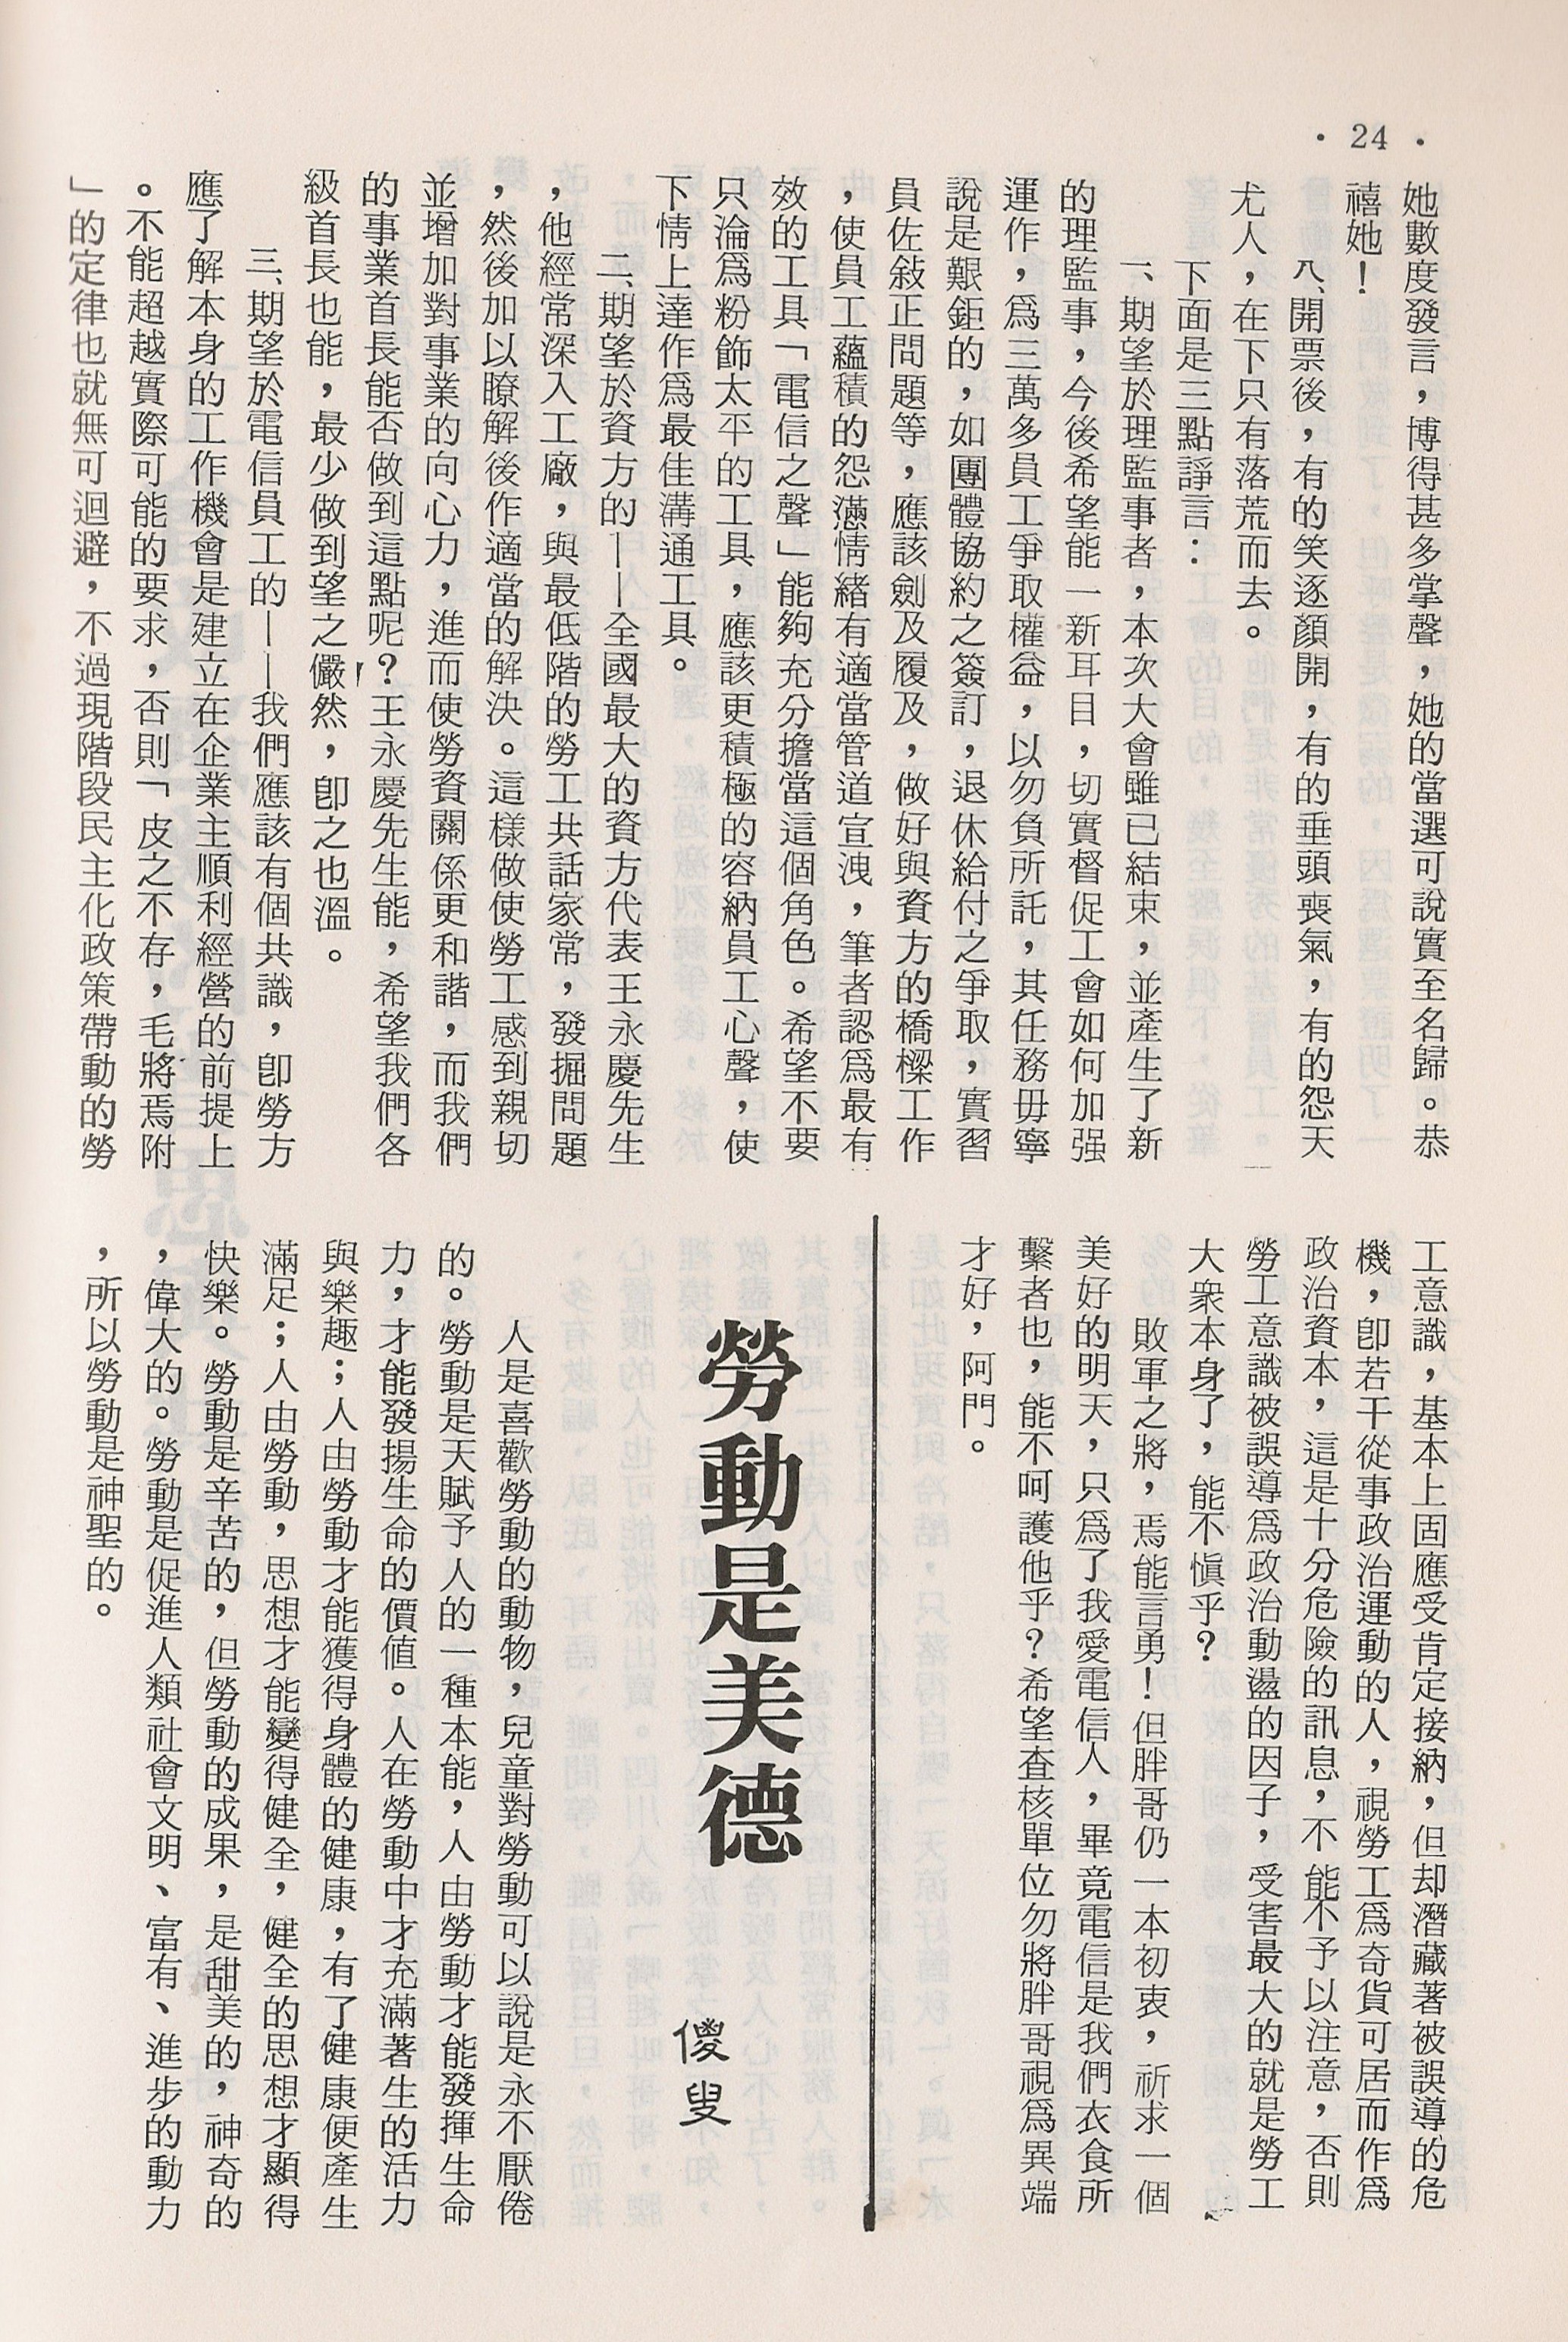 • 24 •
她數度發言，博得甚多掌聲，她的當選可說實至名歸。恭
禧她！
八、開票後，有的笑逐顏開，有的垂頭喪氣，有的怨天
尤人，在下只有落荒而去。
下面是三點諍言：
一、期望於理監事者，本次大會雖已結束，並產生了新
的理監事，今後希望能一新耳目，切實督促工會如何加强
運作，爲三萬多員工爭取權益，以勿負所託，其任務毋寧
說是艱鉅的，如團體協約之簽訂，退休給付之爭取，實習
員佐敍正問題等，應該劍及履及，做好與資方的橋樑工作
，使員工蘊積的怨懣情緒有適當管道宣洩，筆者認爲最有
效的工具「電信之聲」能夠充分擔當這個角色。希望不要
只淪爲粉飾太平的工具，應該更積極的容納員工心聲，使
下情上達作爲最佳溝通工具。
二、期望於資方的——全國最大的資方代表王永慶先生
，他經常深入工廠，與最低階的勞工共話家常，發掘問題
，然後加以瞭解後作適當的解決。這樣做使勞工感到親切
並增加對事業的向心力，進而使勞資關係更和諧，而我們
的事業首長能否做到這點呢？王永慶先生能，希望我們各
級首長也能，最少做到望之儼然，卽之也溫。
三、期望於電信員工的——我們應該有個共識，卽勞方
應了解本身的工作機會是建立在企業主順利經營的前提上
。不能超越實際可能的要求，否則「皮之不存，毛將焉附
」的定律也就無可迴避，不過現階段民主化政策帶動的勞
工意識，基本上固應受肯定接納，但却潛藏著被誤導的危
機，卽若干從事政治運動的人，視勞工爲奇貨可居而作爲
政治資本，這是十分危險的訊息，不能不予以注意，否則
勞工意識被誤導爲政治動盪的因子，受害最大的就是勞工
大衆本身了，能不愼乎？
敗軍之將，焉能言勇！但胖哥仍一本初衷，祈求一個
美好的明天，只爲了我愛電信人，畢竟電信是我們衣食所
繫者也，能不呵護他乎？希望查核單位勿將胖哥視爲異端
才好，阿門。
勞動是美德
傻叟
人是喜歡勞動的動物，兒童對勞動可以說是永不厭倦
的。勞動是天賦予人的一種本能，人由勞動才能發揮生命
力，才能發揚生命的價值。人在勞動中才充滿著生的活力
與樂趣；人由勞動才能獲得身體的健康，有了健康便產生
滿足；人由勞動，思想才能變得健全，健全的思想才顯得
快樂。勞動是辛苦的，但勞動的成果，是甜美的，神奇的
，偉大的。勞動是促進人類社會文明、富有、進步的動力
，所以勞動是神聖的。